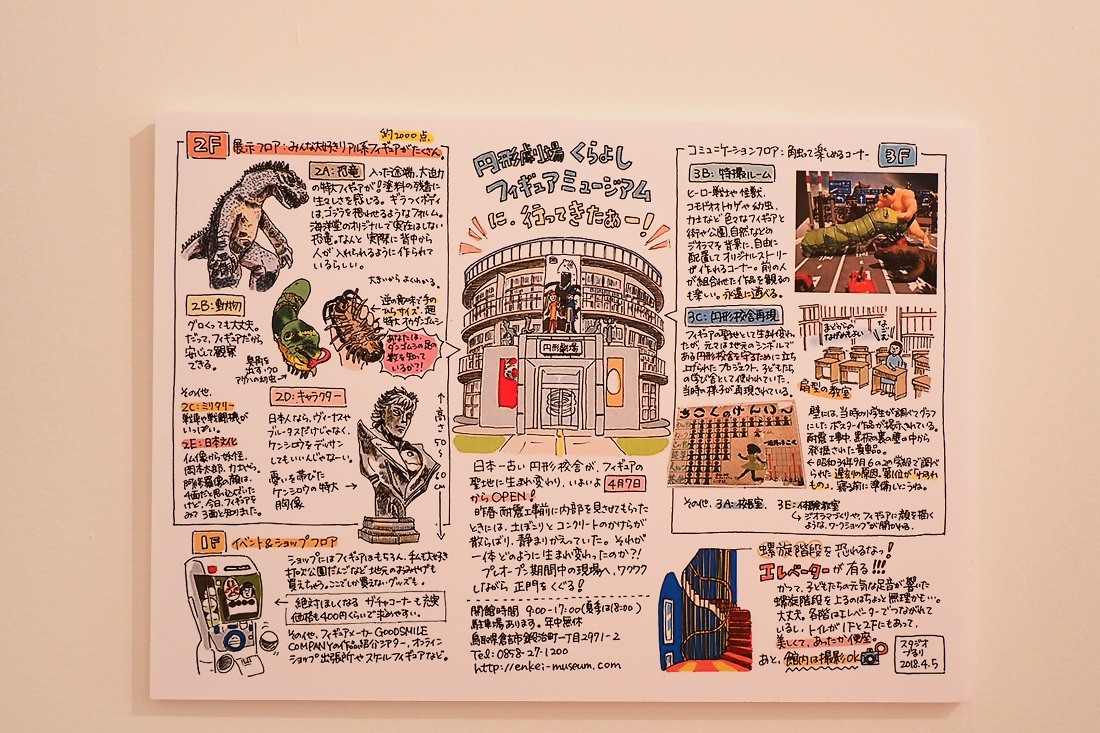 2F
展示フロア：みんな大好きリアル系フィギュアがたくさん。
約2000点
2A：恐竜
入った途端、大迫力
の特大フィギュアが！塗料の残香に
生々しさを感じる。ギラつくボディ
は、ゴジラを想わせるようなフォルム。
海洋堂のオリジナルで実在はしない
恐竜。なんと実際に背中から
人が入れられるように作られて
いるらしい。
2B：動物
グロくっても大丈夫。
だって、フィギュアだから。
安心して観察
できる。
臭角を
出すクロ
アゲハの幼虫→
大きいからよくわかる。
手の
ひらサイズ、超
特大オカダンゴムシ
あなたは、
ダンゴムシの足の
数を知って
いるか?!
その他、
2C：ミリタリー
戦車や戦闘機が
いっぱい。
2E：日本文化
仏像から妖怪、
岡本太郎、力士やら。
阿修羅像の顔は、
4面だと思い込んでいた
けど、今日、フィギュアを
みて3面と知りました。
2D：キャラクター
日本人なら、ヴィーナスや
ブルータスだけじゃなく、
ケンシロウをデッサン
してもいいんじゃない。
憂いを帯びた
ケンシロウの特大→
胸像
高さ50〜60cm
1F
イベント&ショップフロア
ショップにはフィギュアはもちろん、私も大好き
打吹公園だんごなど地元のおみやげも
買えちゃう。ここでしか買えないグッズも。
← 絶対ほしくなるガチャコーナーも充実
価格も400円くらいで求めやすい。
その他、フィギュアメーカーGOODSMILE
COMPANYの作品紹介シアター、オンライン
ショップ出張所やスケールフィギュアなど。
円形劇場くらよし
フィギュアミュージアム
に、行ってきたぁー！
円形劇場
日本一古い円形校舎が、フィギュアの
聖地に生まれ変わり、いよいよ4月7日
からOPEN！
昨春、耐震工事前に内部を見させてもらった
ときには、土ぼこりとコンクリートのかけらが
散らばり、静まりかえっていた。それが
一体どのように生まれ変わったのか?!
プレオープン期間中の現場へ、ワクワク
しながら正門をくぐる！
開館時間 9:00-17:00（夏季は18:00）
駐車場あります。年中無休
鳥取県倉吉市鍛冶町一丁目2971-2
Tel：0858-27-1200
http://enkei-museum.com
コミュニケーションフロア：自由に楽しめるコーナー
3F
3B：特撮ルーム
ヒーロー戦士や怪獣、
コモドオオトカゲや幼虫、
力士など色々なフィギュアと
街や公園、自然などの
ジオラマを背景に、自由に
配置してオリジナルストーリー
が作れるコーナー。前の人
が組合わせた作品を観るの
も楽しい。永遠に遊べる。
3C：円形校舎再現
フィギュアの聖地として生まれ変わっ
たが、元々は地元のシンボルで
ある円形校舎を守るために立ち
上げられたプロジェクト。子どもたち
の学び舎として使われていた、
当時の様子が再現されている。
扇型の教室
壁には、当時の小学生が調べてグラフ
にしたポスター作品が掲示されている。
耐震工事中、黒板の裏の壁の中から
発掘された貴重品。
← 昭和34年9月6の2の学級で調べ
られた遅刻の原因。第1位が「わすれ
もの」。寝る前に準備しとうね。
その他、3A：校長室、3E：体験教室
↳ジオラマづくりや、フィギュアに顔を描く
ような、ワークショップが開かれる。
螺旋階段を恐れるなっ！
エレベーターが有る!!!
かつて、子どもたちの元気な足音が響いた
螺旋階段を上るのはちょっと無理かも…。
大丈夫。各階はエレベーターでつながれて
いるし、トイレが1Fと2Fにもあって、
美しくて、あったか便座。
あと、館内は撮影OK
スタジオ
ブるり
2018.4.5